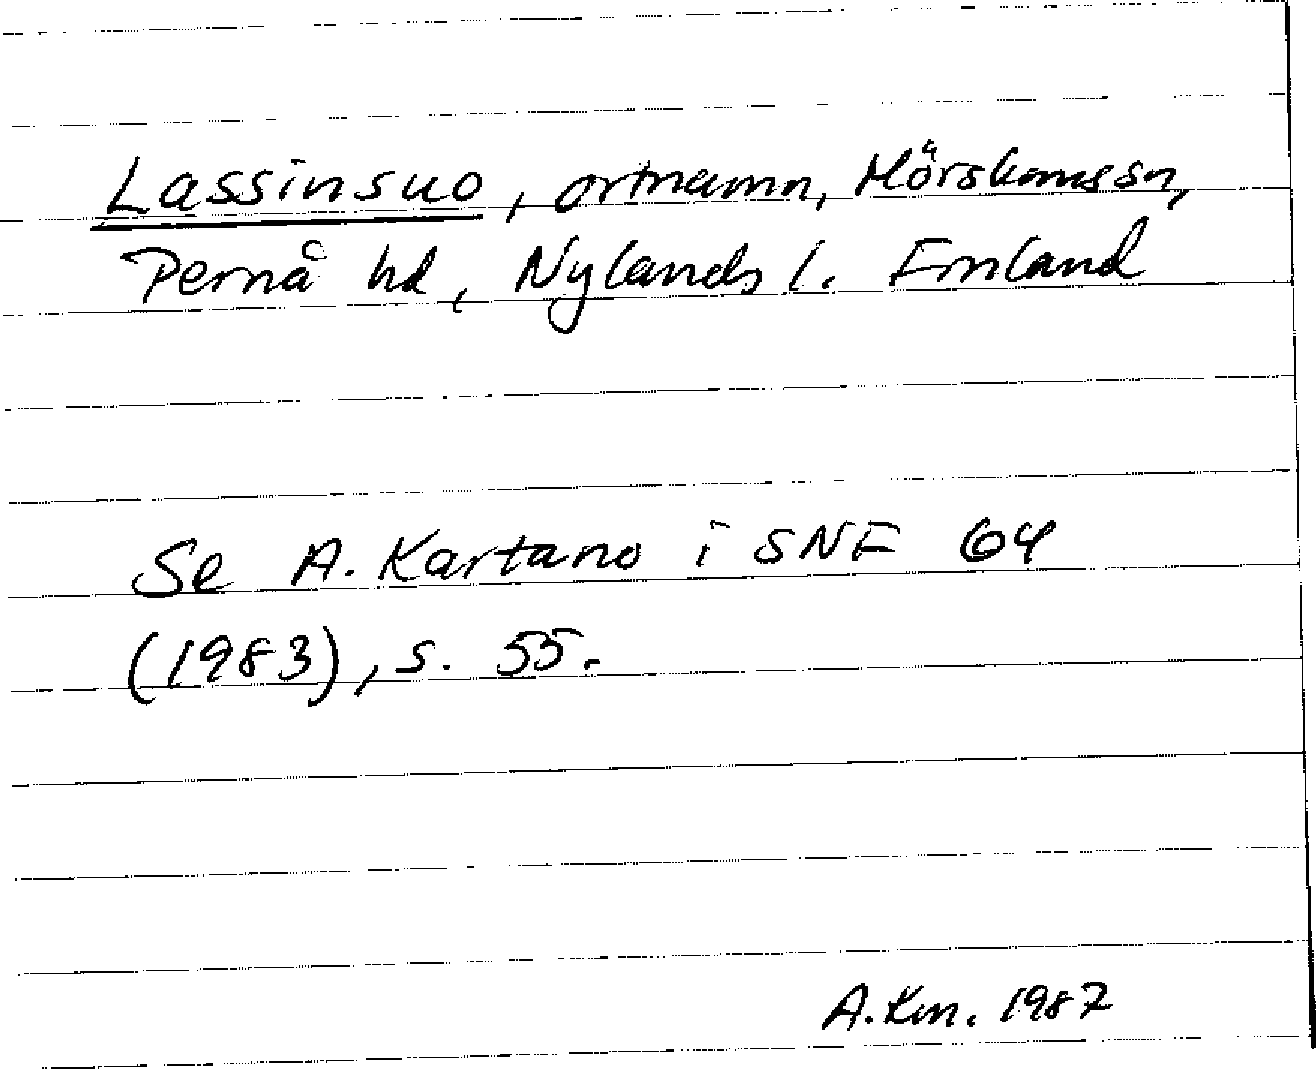 Lassinsuo, ortnamn, Mörskoms sn,
Pernå hd, Nylands l. Finland
Se A. Kartano i SNF 64
(1983), s. 55.
A.Km. 1987